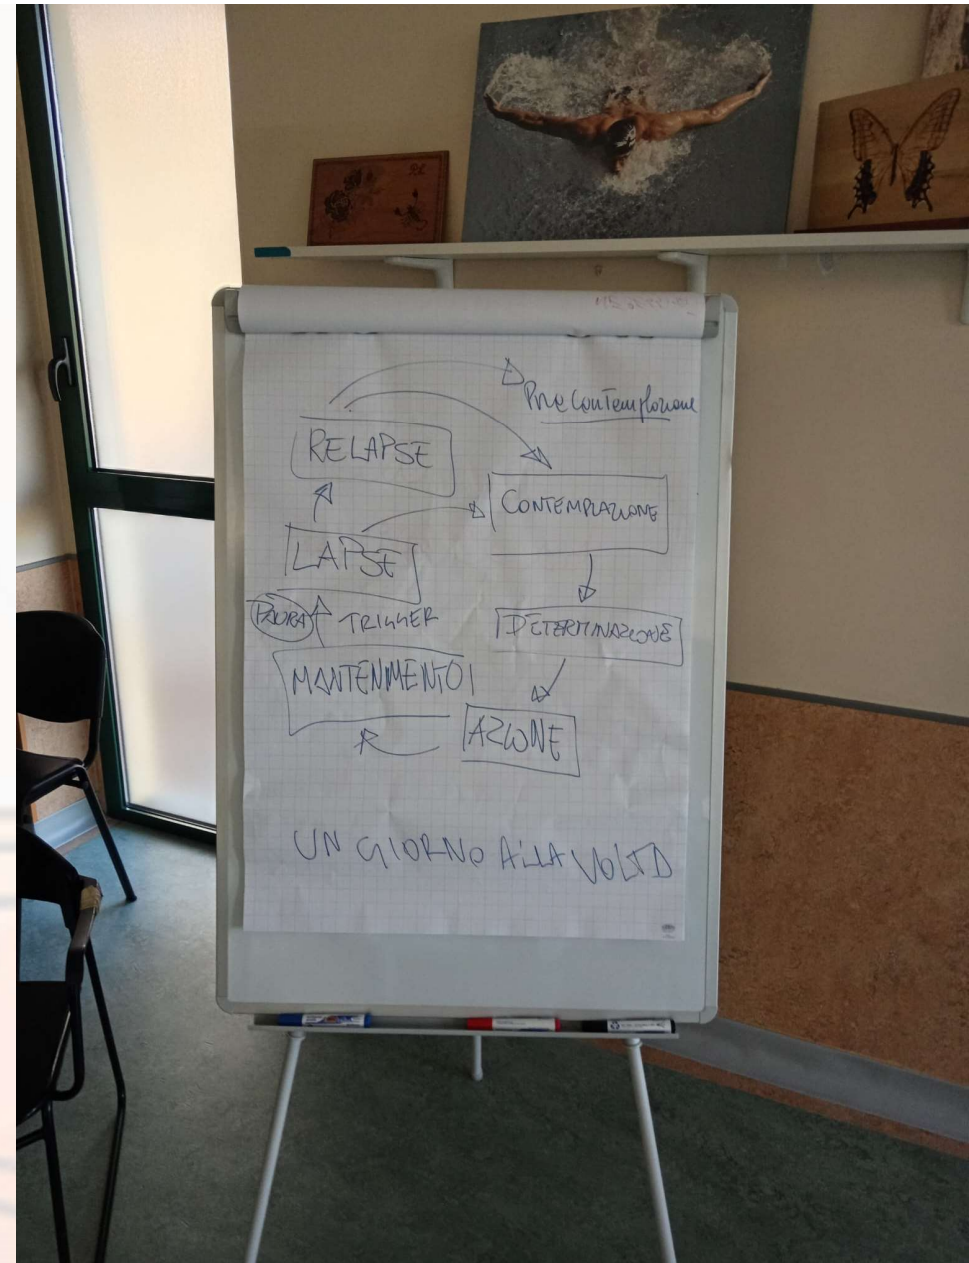 Precontemplazione
RELAPSE
CONTEMPLAZIONE
LAPSE
PAURA TRIGGER
DETERMINAZIONE
MANTENIMENTO
AZIONE
UN GIORNO ALLA VOLTA